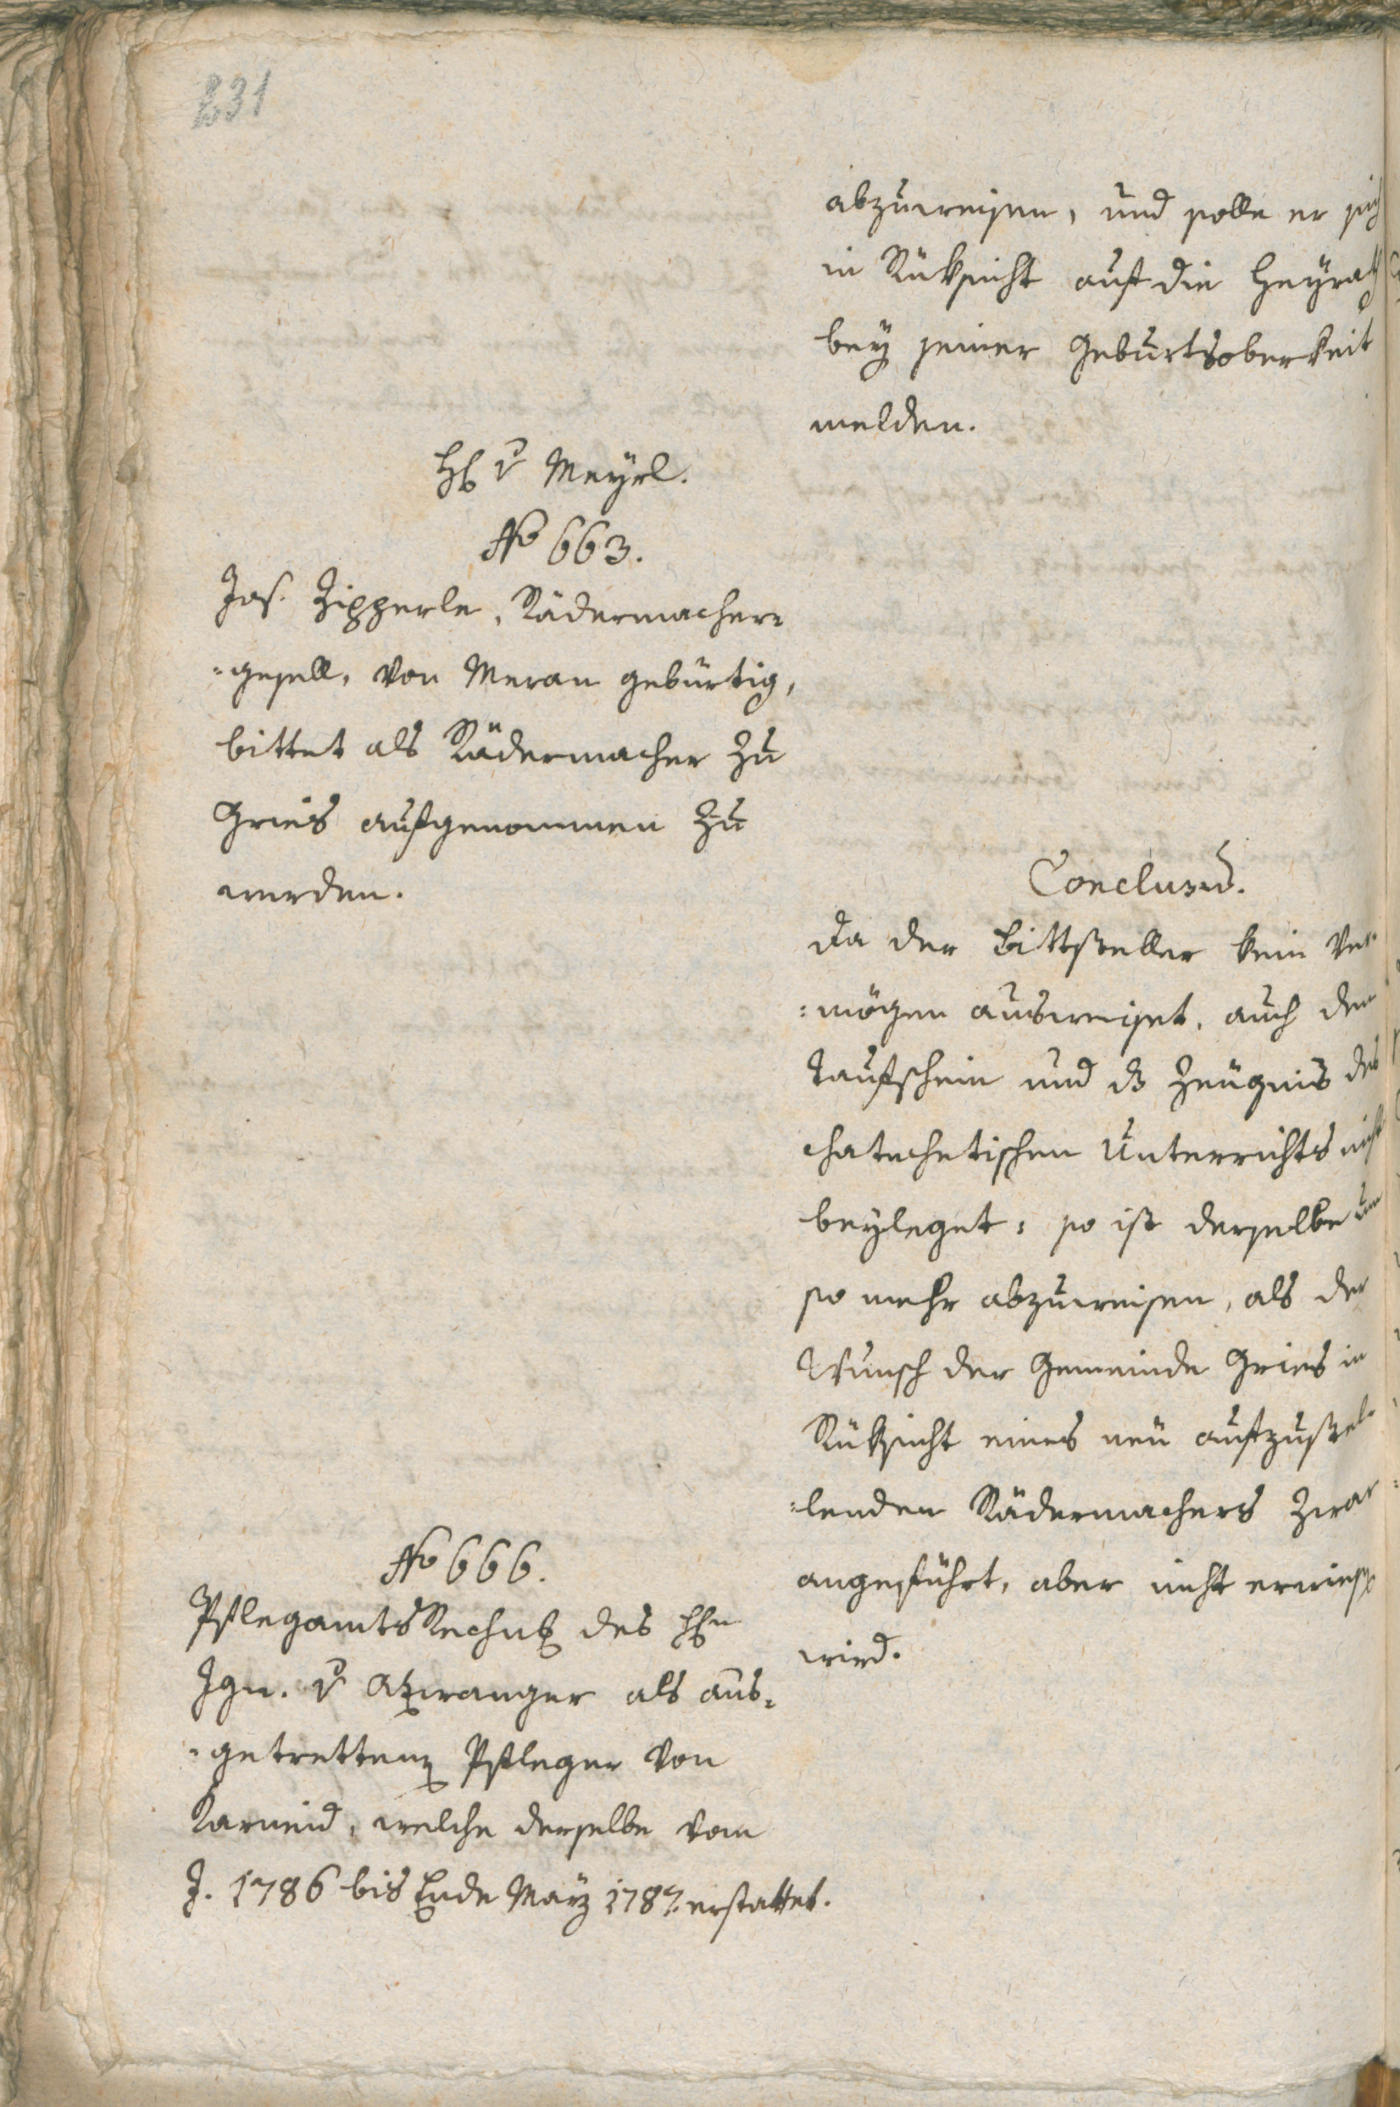 231
abzuweisen, und solle er sich
in Rüksicht auf die Heyrath
bey seiner Geburtsoberkeit
melden.
H v Meyrl.
No 663.
Jos. Zipperle, Rädermacher=
=gesell, von Meran gebürtig,
bittet als Rädermacher zu
Gries aufgenommen zu
werden.
Conclusū.
Da der Bittsteller kein Ver=
=mögen ausweiset, auch den
Taufschein und ds Zeugnis des
chatechetischen Unterrichts nicht
beyleget: so ist derselbe um
so mehr abzuweisen, als der
Wunsch der Gemeinde Gries in
Rüksicht eines neu aufzustel=
=lenden Rädermachers zwar
angeführt, aber nicht erwiesen
wird.
No 666.
Pflegamts Rechng des Hn
Ign. v Atzwanger als aus=
=getrettenen Pfleger von
Karneid, welche derselbe vom
J. 1786 bis Ende März 1787. erstattet.